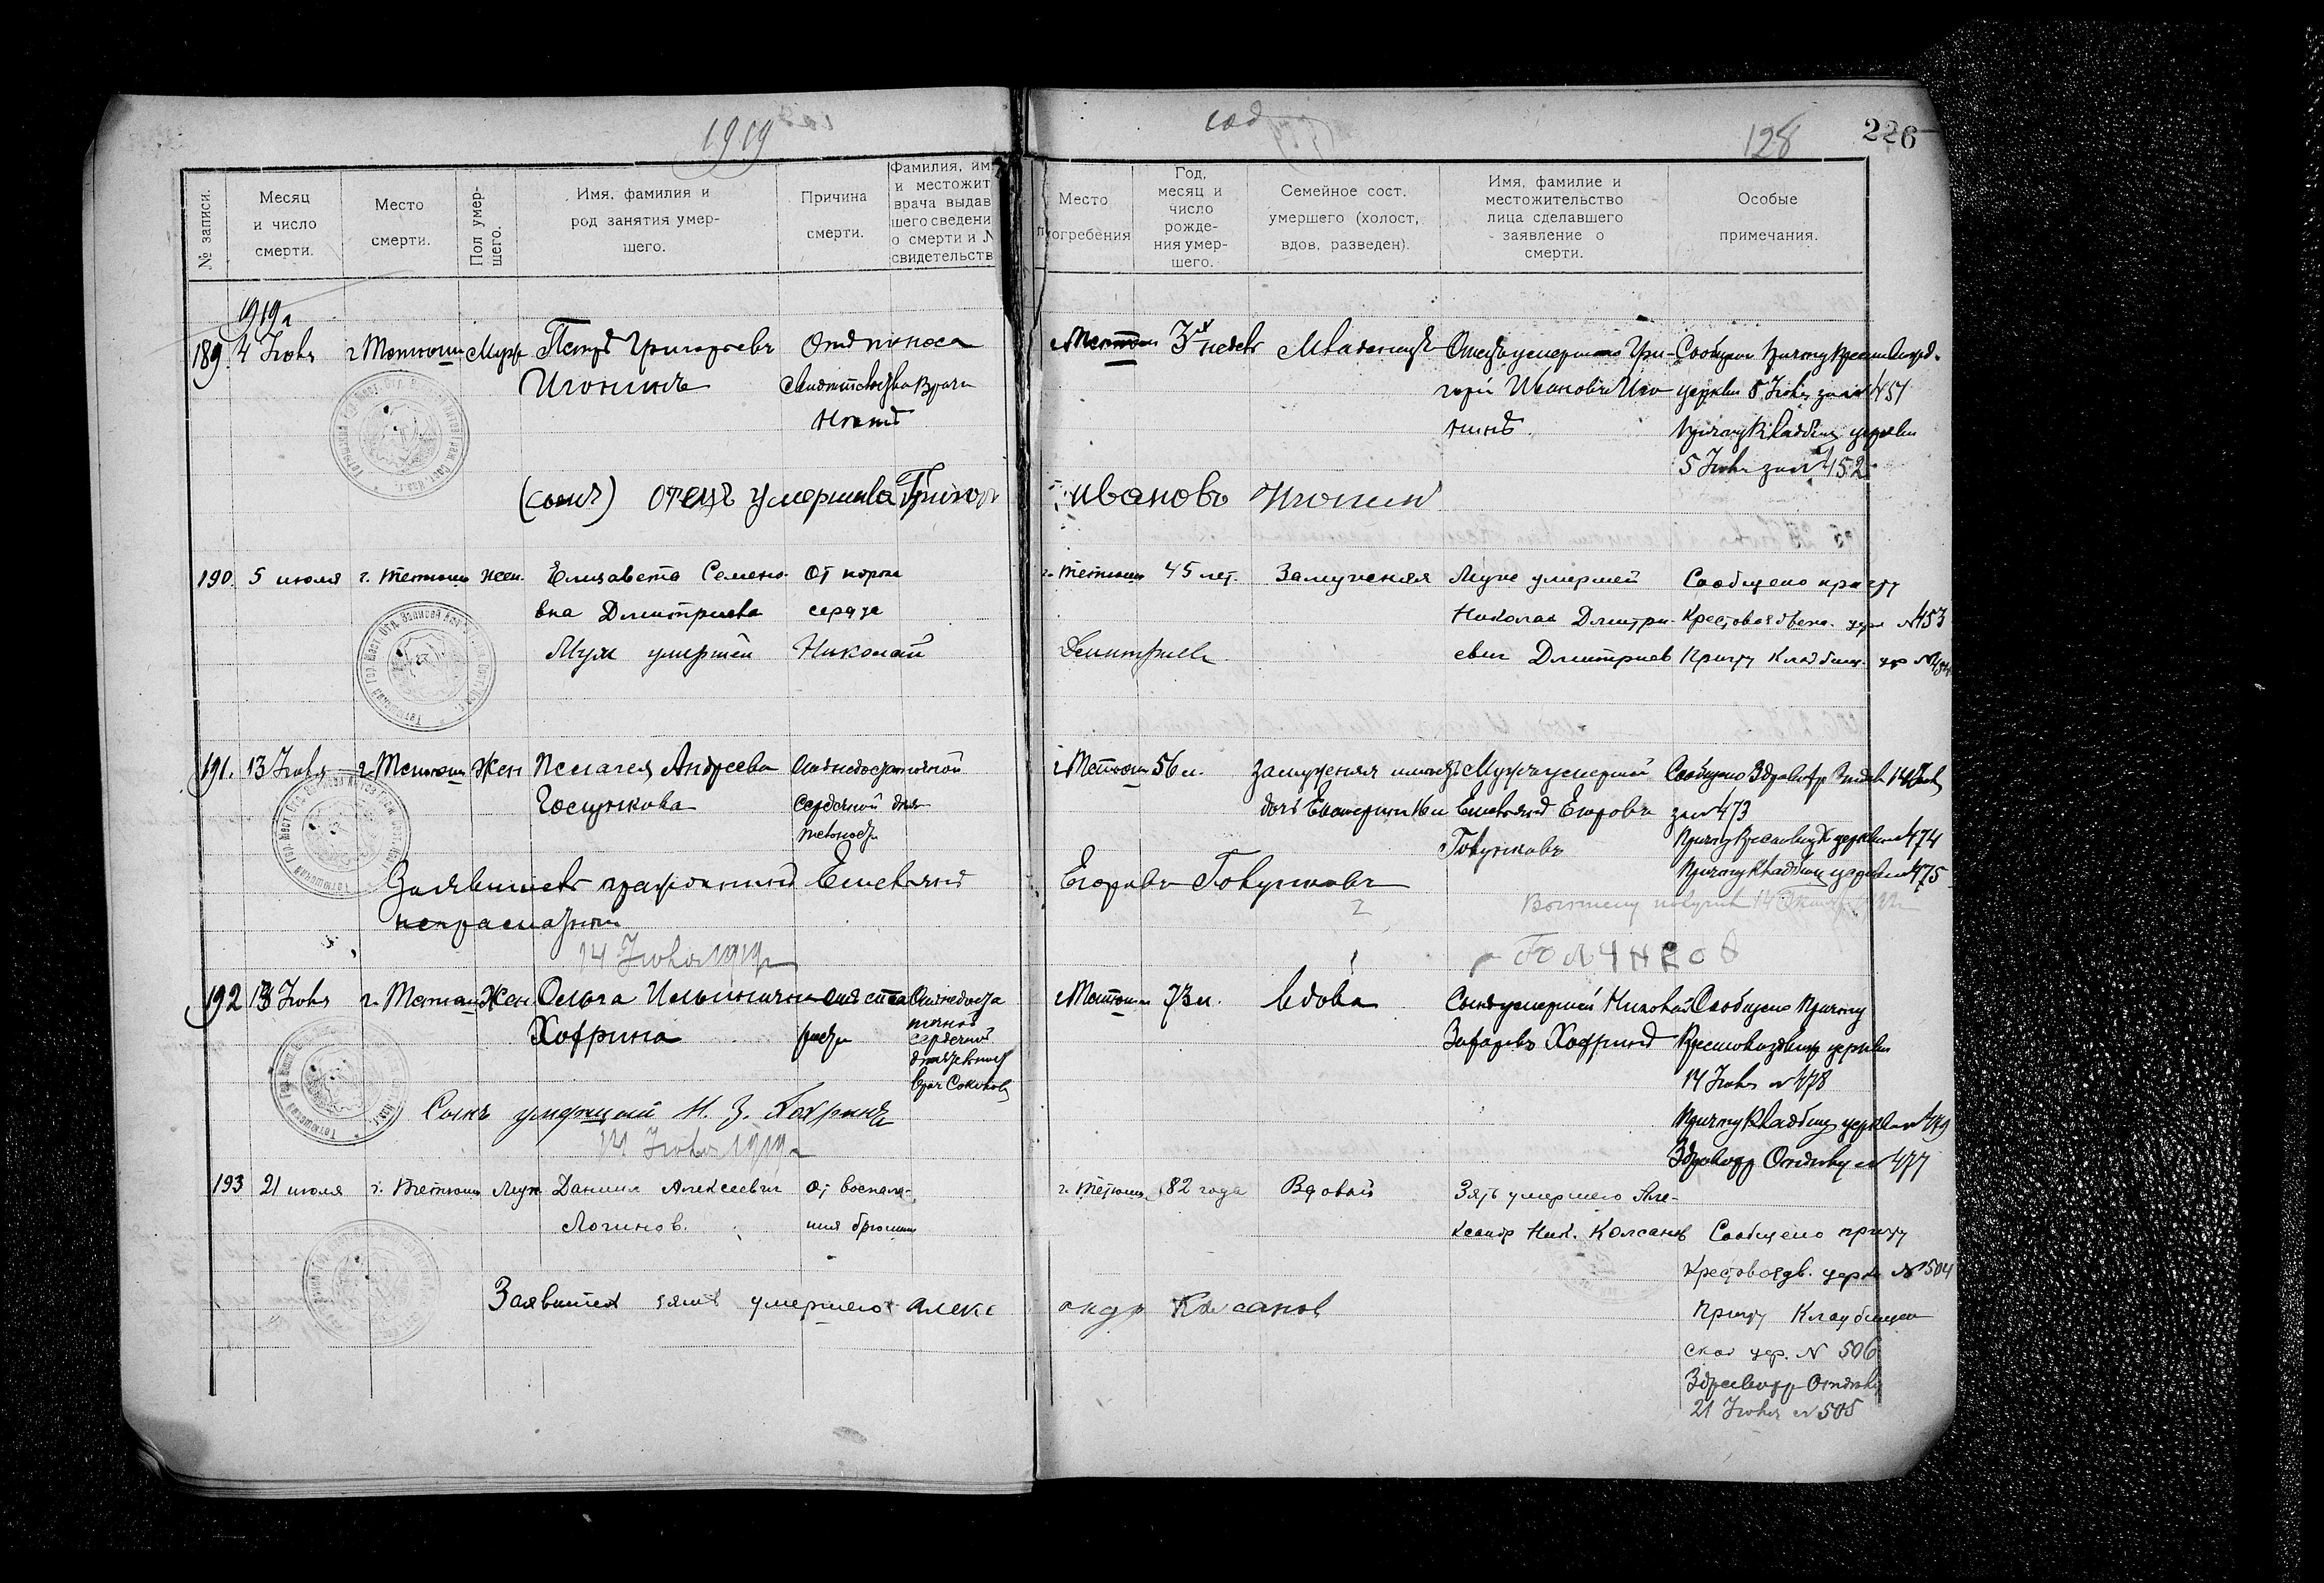 1919
год
128
226
№ записи.
Месяц и число смерти.
Место смерти.
Пол умер- шего.
Имя, фамилия и род занятия умер- шего.
Причина смерти.
Фамилия, им и местожит врача выдав шего сведени о смерти и № свидетельств
Место погребения
Год, месяц и число рожде- ния умер- шего.
Семейное сост. умершего (холост, вдов, разведен).
Имя, фамилие и местожительство лица сделавшего заявление о смерти.
Особые примечания.
1919 г
189. 4 Июля г Тетюши Муж Петръ Григорьевъ Отъ поноса
Игонинъ Свидетельства Врача
Нетъ
г Тетюши 3х недель Младенецъ Отецъ умершаго Гри-
горій Ивановъ Иго-
нинъ
Сообщено Причту Крестовоздв.
церкви 5 Июля за № 451
Причту Кладбищ церкви
5 Июля за № 452
отецъ умершива Григор ивановъ Игонин
190. 5 июля г. Тетюши жен. Елизавета Семено- От порока
вна Дмитриева сердца
г. Тетюши 45 лет. Замужняя Муж умершей
Николай Дмитри-
евич Дмитриев
Сообщено причту
Крестовоздвиж. церк № 453
Причту Кладбищ. цер №
Муж умершей Николай Дмитриев
191. 13 Июля г. Тетюши Жен Пелагея Андреева
сердечной дея
тельности
г Тетюши 56 л. замужняя имеетъ
дочь Екатерину 16 л
Муж умершей
Емельянъ Егоровъ
Голунковъ
Сообщено Здравотд.
за № 473
Причту Крестовоздв церкви № 474
Причту Кладбищ церкви № 475
Заявитель гражданинъ Емельянъ Егоровъ Голунковъ
неграмотный
14 Июля 1919 г
192 13 Июля г. Тетюши Жен Ольга Ильинична
Хотрина
От недоста
точной
сердечной
деятельности
врач Соколов
г Тетюши 73 л. вдова Сынъ умершей Николай
Захаровъ Хотринъ
Сообщено Причту
Крестовоздвиж церкви
14 Июля № 478
Причту Кладбищ церкви № 479
Здравотд Отделу № 477
Сынъ умершей Н. З. Хотринъ
14 Июля 1919 г
193 21 июля г. Тетюши Муж Даниил Алексеевич От воспале-
Логинов. ния брюшины
г. Тетюши 82 года Вдовый Зять умершего Але-
ксандр Ник. Колсанов
Сообщено причту
Крестовоздв. церкви № 504
Причту Кладбищен
ской цер. № 506
Здравотд Отделу
21 Июля № 505
Заявитель зять умершего Александр Колсанов